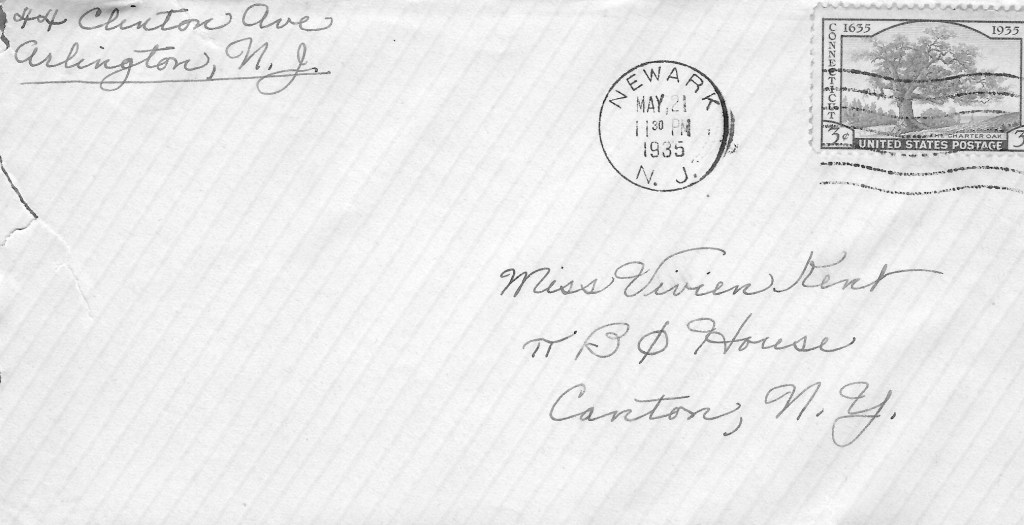 44 Clinton Ave
Arlington, N. J.
NEWARK
MAY, 21
11 30 PM
1935
N. J.
1635 1935
CONNECTICUT
THE CHARTER OAK
3¢ UNITED STATES POSTAGE 3
Miss Vivien Kent
π B Φ House
Canton, N. Y.